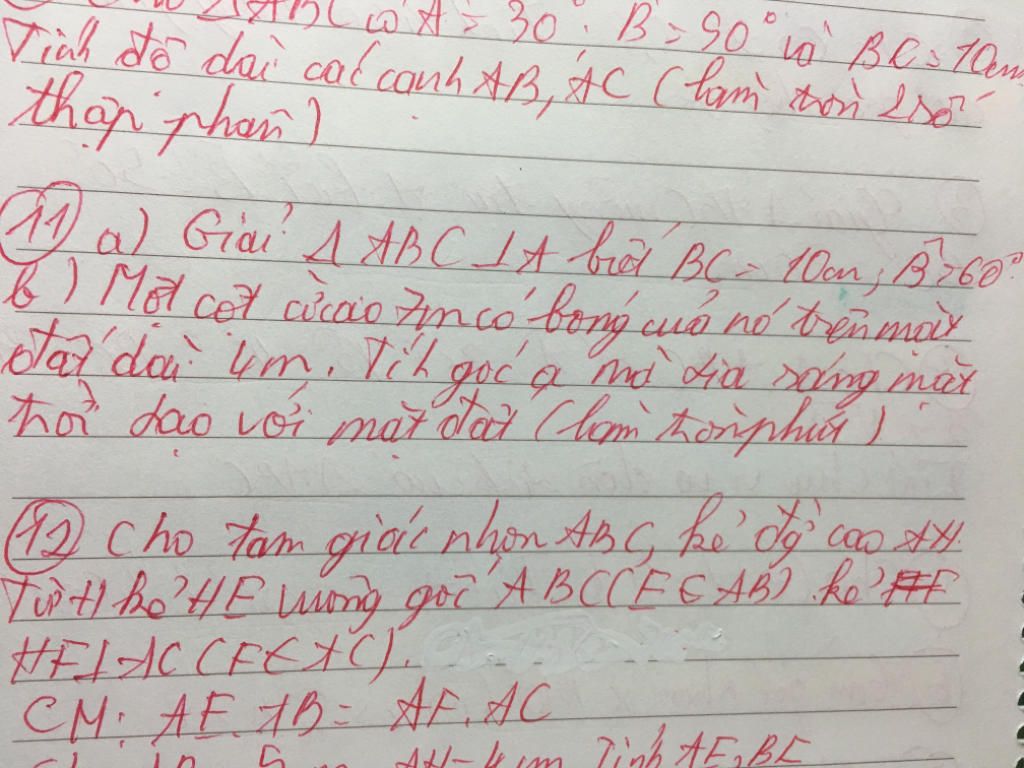 ΔABC có Â = 30°. B̂ = 90° và BC = 10cm
Tính độ dài các cạnh AB, AC (làm tròn 2 số
thập phân)
11 a) Giải Δ ABC ⊥ A biết BC = 10cm, B̂ = 60°
b) Một cột cờ cao 7m có bóng của nó trên mặt
đất dài 4m. Tính góc α mà tia sáng mặt
trời tạo với mặt đất (làm tròn phút)
12 Cho tam giác nhọn ABC, kẻ đg cao AH.
Từ H kẻ HE vuông góc AB (E ∈ AB). kẻ
HF ⊥ AC (F ∈ AC).
CM: AE. AB = AF. AC
AH = 4cm Tính AE, BE